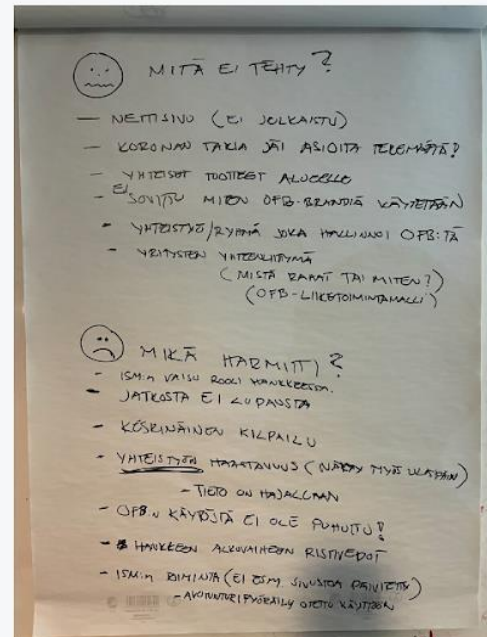 MITÄ EI TEHTY?
— NETTISIVU (EI JULKAISTU)
— KORONAN TAKIA JÄI ASIOITA TEKEMÄTTÄ!
— YHTEISET TUOTTEET ALUEELLE
- EI SOVITTU MITEN OFB-BRANDIÄ KÄYTETÄÄN
- YHTEISTYÖ/RYHMÄ JOKA HALLINNOI OFB:TÄ
- YRITYSTEN YHTEENLIITTYMÄ
(MISTÄ RAHAT TAI MITEN?)
(OFB-LIIKETOIMINTAMALLI)
MIKÄ HARMITTI?
- ISM:n VAISU ROOLI HANKKEESSA.
- JATKOSTA EI LUPAUSTA
- KESKINÄINEN KILPAILU
- YHTEISTYÖN HAJATAVUUS (NÄKYY MYÖS ULOSPÄIN)
- TIETO ON HAJALLAAN
- OFB:n KÄYTÖSTÄ EI OLE PUHUTTU!
- HANKKEEN ALKUVAIHEEN RISTIVEDOT
- ISM:n TOIMINTA (EI ESIM. SIVUSTOA PÄIVITETTY)
- AVOTUNTURIPYÖRÄILY OTETTU KÄYTTÖÖN